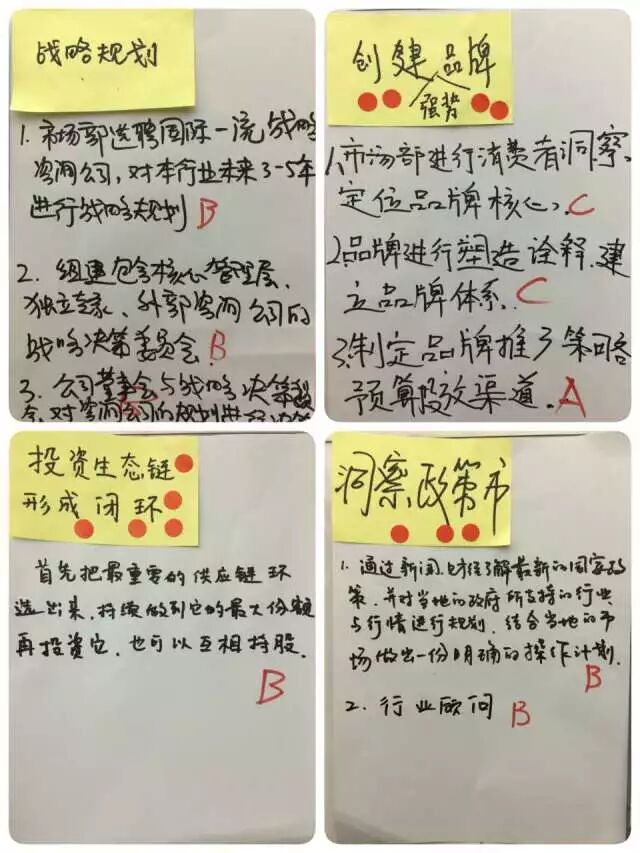 战略规划
1. 市场部选聘国际一流战略
咨询公司，对本行业未来3-5年
进行战略规划
B
2. 组建包含核心管理层、
独立专家、外部咨询公司的
战略决策委员会
B
3. 公司董事会与战略决策
创建品牌
强势
1. 市场部进行消费者洞察、
定位品牌核心。C
2. 品牌进行塑造诠释，建
立品牌体系。C
3. 制定品牌推广策略
预算投放渠道。A
投资生态链
形成闭环
首先把最重要的供应链环
选出来，持续做到它的最大份额
再投资它，也可以互相持股。
B
洞察政策市
1. 通过新闻、财经了解最新的国家政
策，并对当地的政府所支持的行业
与行情进行规划，结合当地的市
场做出一份明确的操作计划。
B
2. 行业顾问 B